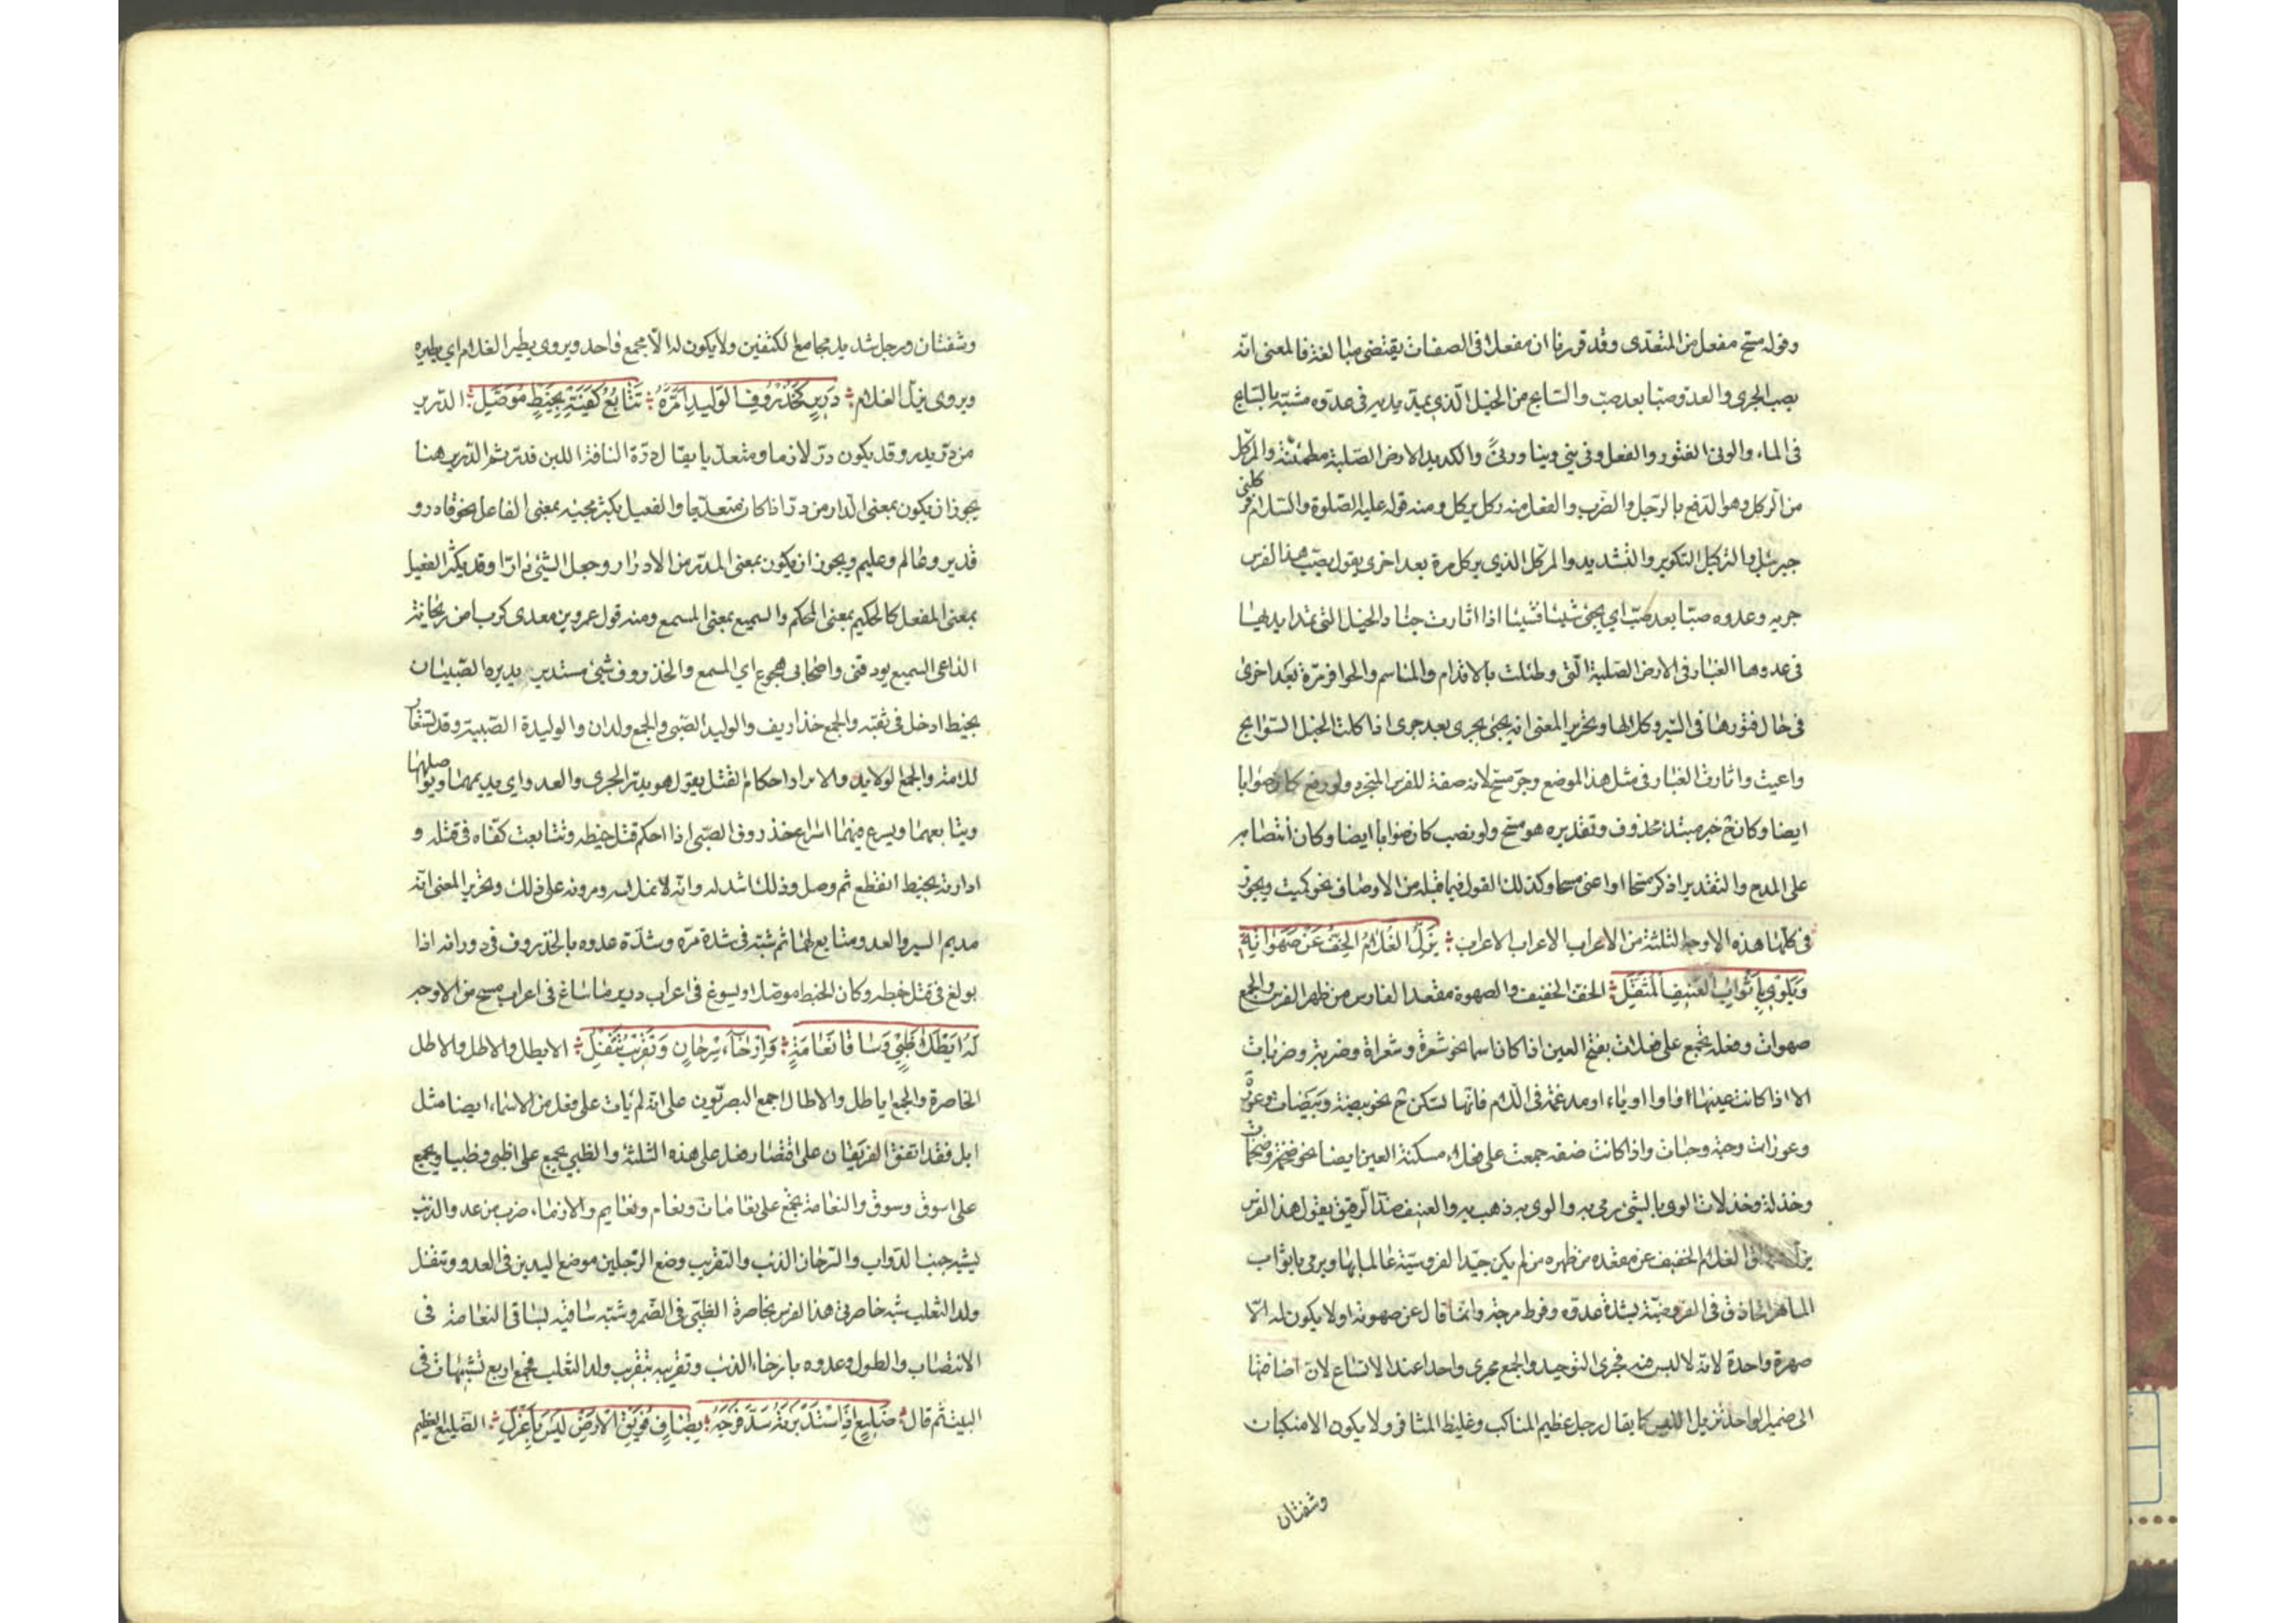 وقوله مسح مفعل من المتعدى وقد قررنا ان مفعلا فى الصفات يقتضى مبالغة فالمعنى انه
يصب الجرى والعدو صبا بعد صب والسابح من الخيل الذي يمد يديه فى عدوه مشبه بالسابح
فى الماء والونى الفتور والفعل ونى ينى ونيا وونىً والكديد الارض الصلبة مطمئنة والمركل
من الركل وهو الدفع بالرجل والضرب والفعل منه ركل يركل ومنه قوله عليه الصلوة والسلام فركلنى
جبرئيل والتركيل التكوير والتشديد والمركل الذي يركل مرة بعد اخرى يقول يصب هذا الفرس
جريه وعدوه صبا بعد صب اي يجئ شيئا فشيئا اذا اثارت جياد الخيل التى تمد ايديها
فى عدوها الغبار فى الارض الصلبة التى وطئت بالاقدام والمناسم والحوافر مرة بعد اخرى
فى حال فتورها فى السير وكلالها وتحرير المعنى انه يجئ بجرى بعد جرى اذا كلت الخيل السوابح
واعيت واثارت الغبار فى مثل هذا الموضع وجر مسح لانه صفة للفرس المنجرد ولو رفع كان صوابا
ايضا وكان ح خبر مبتدء محذوف وتقديره هو مسح ولو نصب كان صوابا ايضا وكان انتصابه
على المدح والتقدير اذكر مسحا او اعنى مسحا وكذلك القول فيما قبله من الاوصاف نحو كميت ويجوز
فى كلها هذه الاوجه الثلثة من الاعراب الاعراب الاعراب يَزِلُّ الغُلَامُ الخِفَّ عَنْ صَهَوَاتِهِ
وَيَلْوِي بِأَثْوَابِ العَنِيفِ المُثَقَّلِ الخف الخفيف والصهوة مقعد الفارس من ظهر الفرس والجمع
صهوات وفعلة يجمع على فعلات بفتح العين اذا كان اسما نحو شعرة وشعراة وضربة وضربات
الا اذا كانت عينها واوا او ياء او مدغمة فى اللام فانها تسكن ح نحو بيضة وبيضات وعورة
وعورات وحبة وحبات واذا كانت صفة جمعت على فعلات مسكنة العين ايضا نحو ضخمة وضخمات
وخدلة وخدلات الوى بالشئ رمى به والوى به ذهب به والعنيف ضد الرفيق يقول هذا الفرس
يزل الغلام الخفيف عن مقعده من ظهره من لم يكن جيد الفروسية عالما بها ويرمى باثواب
الماهر الحاذق فى الفروسية لشدة عدوه وفرط مرحه وانما قال عن صهوته او لا يكون له الا
صهرة واحدة لانه لا لبس فيه فجرى التوحيد والجمع مجرى واحدا عند الاتساع لان اضافتها
الى ضمير الواحد تزيل اللبس كما يقال رجل عظيم المناكب وغليظ المشافر ولا يكون الا منكبان
وشفتان
وشفتان ورجل شديد مجامع الكتفين ولا يكون له الا مجمع واحد ويروى يطير الغلام اي يطيره
ويروى يزل الغلام دَرِيرٍ كَخُذْرُوفِ الوَلِيدِ أَمَرَّهُ تَتَابُعُ كَفَّيْهِ بِخَيْطٍ مُوَصَّلِ الدرير
من در يدر وقد يكون در لازما ومتعديا يقال درة الناقة اللبن فدر ثم الدرير هنا
يجوز ان يكون بمعنى الدار من در اذا كان متعديا والفعيل يكثر مجيئه بمعنى الفاعل نحو قادر و
قدير وعالم وعليم ويجوز ان يكون بمعنى المدر من الادرار وجعل الشئ دارا وقد يكثر الفعيل
بمعنى المفعل كالحكيم بمعنى المحكم والسميع بمعنى المسمع ومنه قول عمرو بن معدى كرب امن ريحانة
الداعى السميع يورقنى واصحابى هجوع اي المسمع والخذروف شئ مستدير يديره الصبيان
بخيط ادخل فى ثقبه والجمع خذاريف والوليد الصبى والجمع ولدان والوليدة الصبية وقد تستعار
للامة والجمع الولايد والامرار احكام الفتل يقول هو يدر الجرى والعدو اي يديمهما ويواصلهما
ويتابعهما ويسرع فيهما اسراع خذروف الصبى اذا احكم فتل خيطه وتتابعت كفاه فى فتله و
ادارته بخيط انقطع ثم وصل وذلك اشد له وانه لانملاسه ومرونه على ذلك وتحرير المعنى انه
مديم السير والعدو متابع لهما ثم شبه فى شدة مره وشدة عدوه بالخذروف فى دورانه اذا
بولغ فى فتل خيطه وكان الخيط موصلا ويسوغ فى اعراب درير ما ساغ فى اعراب مسح من الاوجه
لَهُ أَيْطَلَا ظَبْيٍ وَسَاقَا نَعَامَةٍ وَإِرْخَاءُ سِرْحَانٍ وَتَقْرِيبُ تَتْفُلِ الايطل والاطل والاطل
الخاصرة والجمع اياطل والاطال اجمع البصريون على انه لم يات على فعل من الاسماء ايضا مثل
ابل فقد اتفق الفريقان على اقتصار فعل على هذه الثلثة والظبى يجمع على اظبى وظبيا ويجمع
على اسوق وسوق والنعامة يجمع على نعامات ونعام ونعايم والارخاء ضرب من عدو الذئب
يشبه خبب الدواب والسرحان الذئب والتقريب وضع الرجلين موضع اليدين فى العدو وتتفل
ولد الثعلب شبه خاصرتى هذا الفرس بخاصرة الظبى فى الضمر وشبه ساقيه بساقى النعامة فى
الانتصاب والطول وعدوه بارخاء الذئب وتقريبه بتقريب ولد الثعلب فجمع اربع تشبيهات فى
البيت ثم قال ضَلِيعٍ إِذَا اسْتَدْبَرْتَهُ سَدَّ فَرْجَهُ بِضَافٍ فُوَيْقَ الأَرْضِ لَيْسَ بِأَعْزَلِ الضليع العظيم